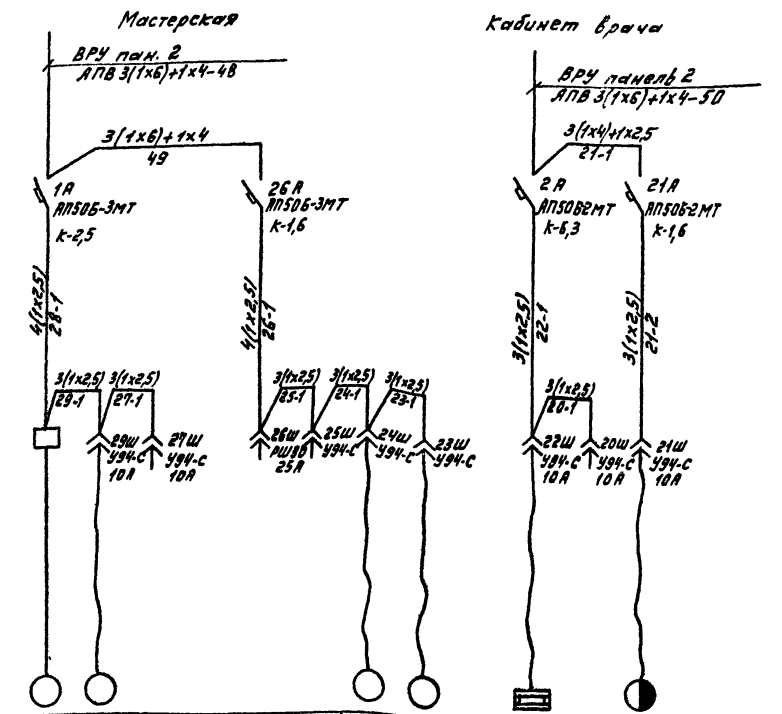 Мастерская
ВРУ пан. 2
АПВ 3(1х6)+1х4-48
3(1х6)+1х4
49
1А
АП50Б-3МТ
К-2,5
26А
АП50Б-3МТ
К-1,6
4(1х2,5)
28-1
4(1х2,5)
26-1
3(1х2,5)
29-1
3(1х2,5)
27-1
3(1х2,5)
25-1
3(1х2,5)
24-1
3(1х2,5)
23-1
29Ш
У94-С
10А
27Ш
У94-С
10А
26Ш
РШ
25А
25Ш
У94-С
24Ш
У94-С
23Ш
У94-С
Кабинет врача
ВРУ панель 2
АПВ 3(1х6)+1х4-50
3(1х4)+1х2,5
21-1
2А
АП50Б2МТ
К-6,3
21А
АП50Б-2МТ
К-1,6
3(1х2,5)
22-1
3(1х2,5)
21-2
3(1х2,5)
20-1
22Ш
У94-С
10А
20Ш
У94-С
10А
21Ш
У94-С
10А